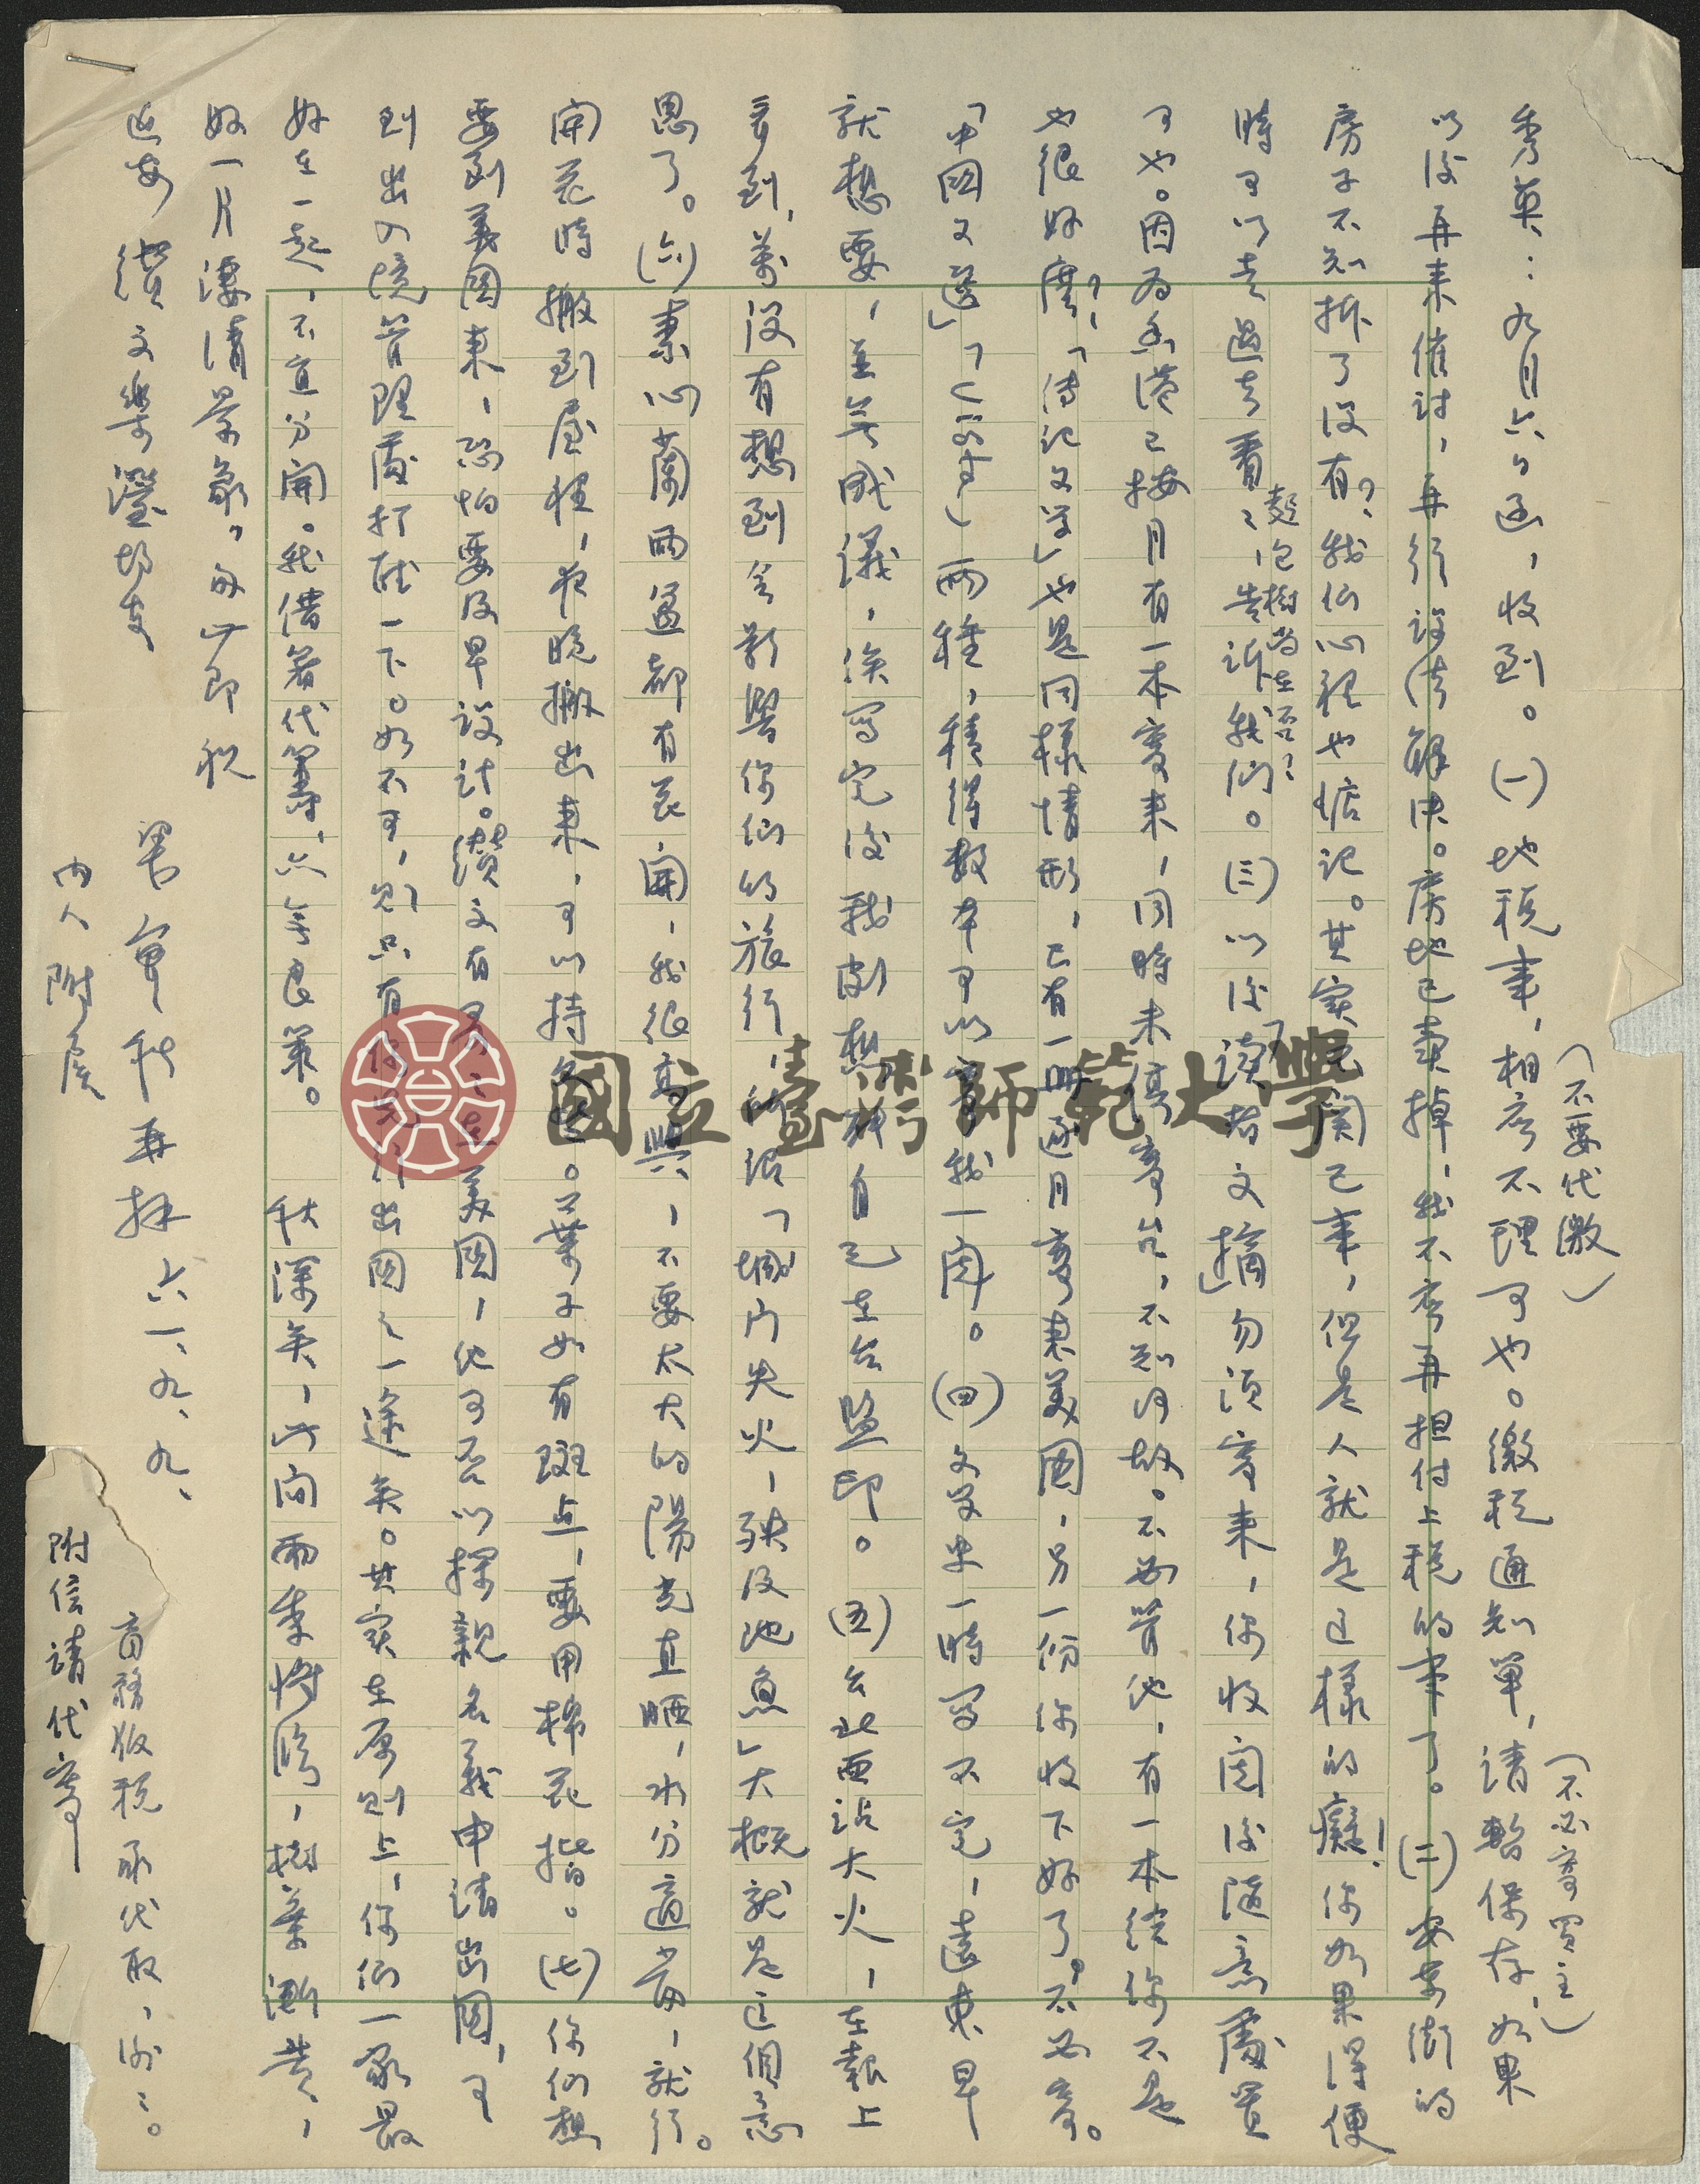 秀英：九月六日函，收到。(一)地稅事，相應不理可也。繳稅通知單，請暫保存，如果
（不要代繳）
（不必寄買主）
以後再來催討，再行設法解決。房地已賣掉，我不應再担付上稅的事了。(二)安東街的
房子不知拆了沒有？我仙心裡也惦記。其實無関己事，但是人就是這樣的癡！你如果得便
時可以走過去看看，告訴我們。(三)以後「讀者文摘」勿須寄來，你收閱後隨意處置
麵包樹尚在否？
可也。因為香港已按月有一本寄來，同時未停寄台，不知何故。不必管他，有一本給你不是
也很好麼？「傳記文学」也是同樣情形，已有一冊逐月寄來美國，另一份你收下好了。不必寄。
「中國文選」「 」兩種，積得数本可以寄我一閱。(四)文学史一時寫不完，遠東早
就想要，並無成議，俟寫完後我劇想 自己在台監印。(五)台北西站大火，在報上
看到，萬沒有想到会影響你仙的旅行，所謂「城門失火，殃及池魚」大概就是這個意
思了。(六)素心蘭兩盆都有花開，我很高興，不要太大的陽光直晒，水分適當，就行。
開花時搬到屋裡，夜晚搬出來，可以持久些。葉子如有斑点，要用棉花揩。(七)你仙想
要到美國來，恐怕要及早設計。續文有男 在美國，他可否以探親名義申請出國，可
到出入境管理處打聽一下。如不可，則只有你先行出國之一途矣。其實在原則上，你仙一家最
好在一起，不宜分開。我借箸代籌，亦無良策。　秋深矣，此间雨季將臨，樹葉漸黃，
好一片淒清景象，匆此即祝
近安　續文樂瀅均吉
梁實秋再拜 六一、九、九、
內人附候
商務版稅承代取，谢谢。
附信請代寄
國立臺灣師範大學